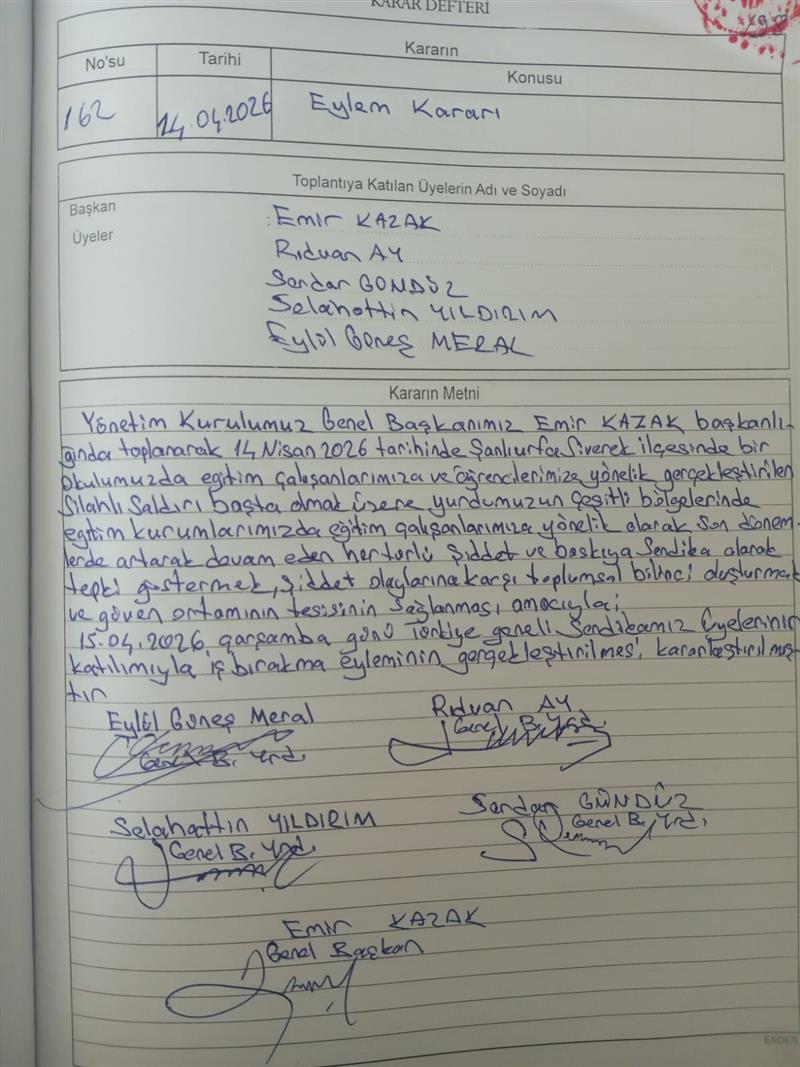 KARAR DEFTERİ
No'su
Tarihi
Kararın
Konusu
162
14.04.2026
Eylem Kararı
Toplantıya Katılan Üyelerin Adı ve Soyadı
Başkan
: Emir KAZAK
Üyeler
Rıdvan AY
Serdar GÜNDÜZ
Selahattin YILDIRIM
Eylül Güneş MERAL
Kararın Metni
Yönetim Kurulumuz Genel Başkanımız Emir KAZAK başkanlı-
ğında toplanarak 14 Nisan 2026 tarihinde Şanlıurfa Siverek ilçesinde bir
okulumuzda eğitim çalışanlarımıza ve öğrencilerimize yönelik gerçekleştirilen
Silahlı Saldırı başta olmak üzere yurdumuzun çeşitli bölgelerinde
eğitim kurumlarımızda eğitim çalışanlarımıza yönelik olarak, son dönem-
lerde artarak devam eden her türlü Şiddet ve baskıya Sendika olarak
tepki göstermek, şiddet olaylarına karşı toplumsal bilinci oluşturmak
ve güven ortamının tesisinin Sağlanması amacıyla;
15.04.2026 çarşamba günü Türkiye geneli Sendikamız Üyelerinin
katılımıyla iş bırakma eyleminin gerçekleştirilmesi, kararlaştırılmış-
tır
Eylül Güneş Meral
Genel B. Yrd.
Rıdvan AY
Genel B. Yrd.
Selahattin YILDIRIM
Genel B. Yrd.
Serdar GÜNDÜZ
Genel B. Yrd.
Emir KAZAK
Genel Başkan
ENDER